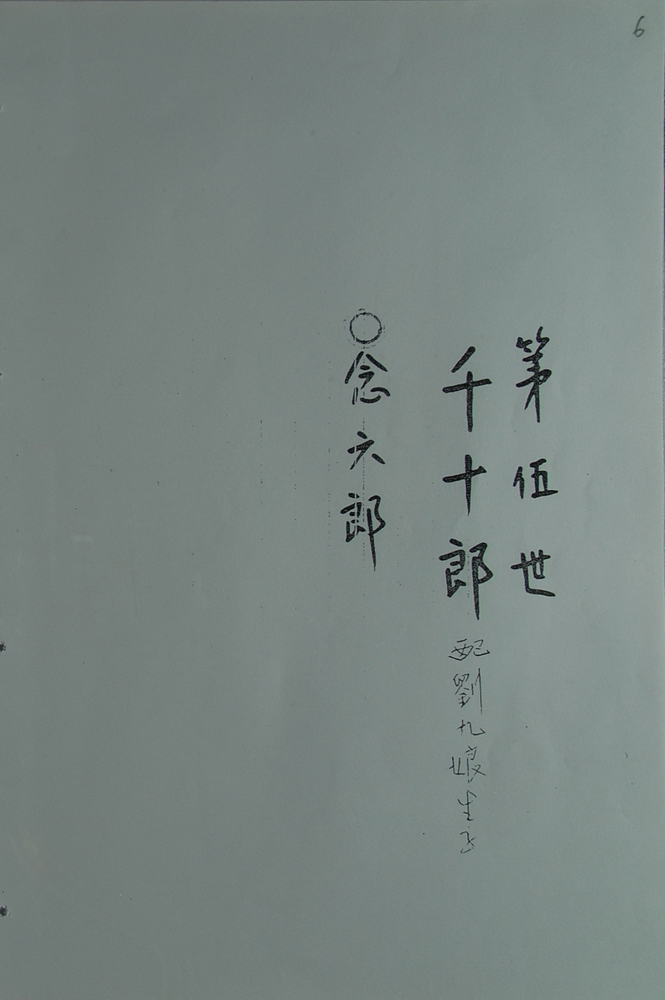 6
第伍世
千十郎配劉九娘生子
○念六郎